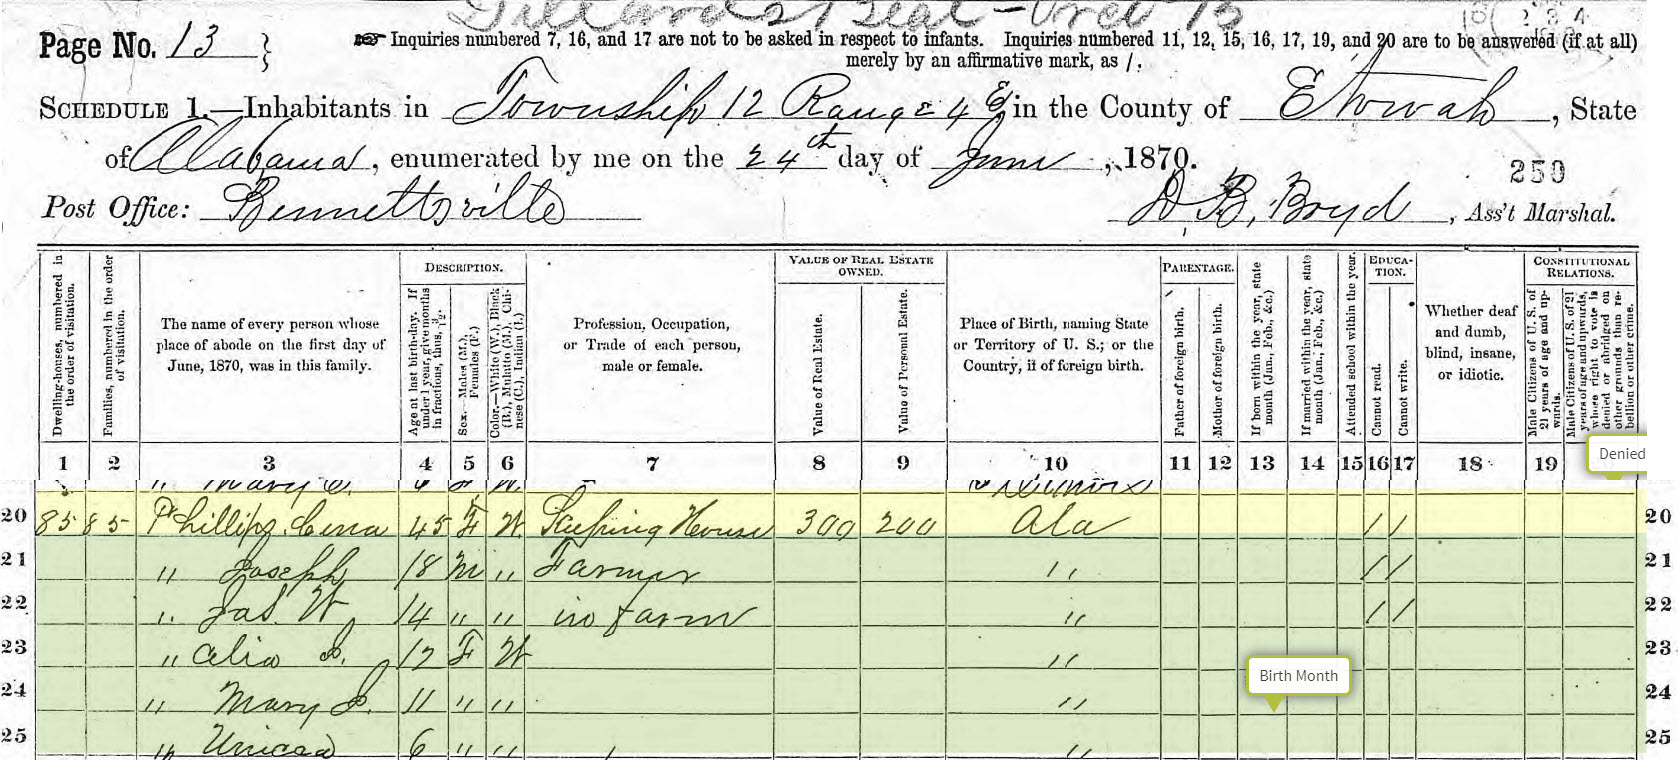 Page No. 13
☞ Inquiries numbered 7, 16, and 17 are not to be asked in respect to infants. Inquiries numbered 11, 12, 15, 16, 17, 19, and 20 are to be answered (if at all)
merely by an affirmative mark, as /.
SCHEDULE 1.—Inhabitants in Township 12 Range 4 E, in the County of Etowah, State
of Alabama, enumerated by me on the 24th day of June, 1870.
250
Post Office: Bennettsville D. B. Boyd, Ass't Marshal.
Dwelling-houses, numbered in the order of visitation.
Families, numbered in the order of visitation.
The name of every person whose place of abode on the first day of June, 1870, was in this family.
DESCRIPTION.
Age at last birth-day. If under 1 year, give months in fractions, thus, 3/12.
Sex.—Males (M.), Females (F.)
Color.—White (W.), Black (B.), Mulatto (M.), Chinese (C.), Indian (I.)
Profession, Occupation, or Trade of each person, male or female.
VALUE OF REAL ESTATE OWNED.
Value of Real Estate.
Value of Personal Estate.
Place of Birth, naming State or Territory of U. S.; or the Country, if of foreign birth.
PARENTAGE.
Father of foreign birth.
Mother of foreign birth.
If born within the year, state month (Jan., Feb., &c.)
If married within the year, state month (Jan., Feb., &c.)
Attended school within the year.
EDUCATION.
Cannot read.
Cannot write.
Whether deaf and dumb, blind, insane, or idiotic.
CONSTITUTIONAL RELATIONS.
Male Citizens of U. S. of 21 years of age and upwards.
Male Citizens of U. S. of 21 years of age and upwards, whose right to vote is denied or abridged on other grounds than rebellion or other crime.
1 2 3 4 5 6 7 8 9 10 11 12 13 14 15 16 17 18 19
Denied
" Mary 6 F W.
20 85 85 Phillips 45 F W. Keeping House 300 200 Ala / / 20
21 " Joseph 18 M " Farmer " / / 21
22 " Jas. W 14 " " on farm " / / 22
23 " Celia 12 F W " 23
Birth Month
24 " Mary 11 " " " 24
25 " 6 " " " 25